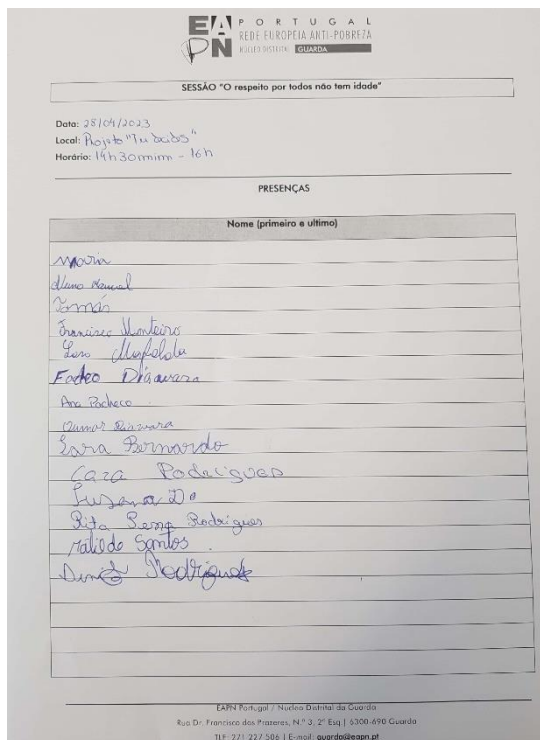 EAPN PORTUGAL
REDE EUROPEIA ANTI-POBREZA
NÚCLEO DISTRITAL GUARDA
SESSÃO "O respeito por todos não tem idade"
Data: 28/04/2023
Local: Projeto "Tu Decides"
Horário: 14h30mim - 16h
PRESENÇAS
Nome (primeiro e ultimo)
Maria
Nuno Manuel
Tomás
Francisco Monteiro
Mafalda
Fodeo Diawara
Ana Pacheco
Oumar Diawara
Sara Bernardo
Cara Rodrigues
Susana
Rita Pena Rodrigues
Matilde Santos
Rodrigues
EAPN Portugal / Núcleo Distrital da Guarda
Rua Dr. Francisco dos Prazeres, N.º 3, 2º Esq.| 6300-690 Guarda
TLF: 271 227 506 | E-mail: guarda@eapn.pt